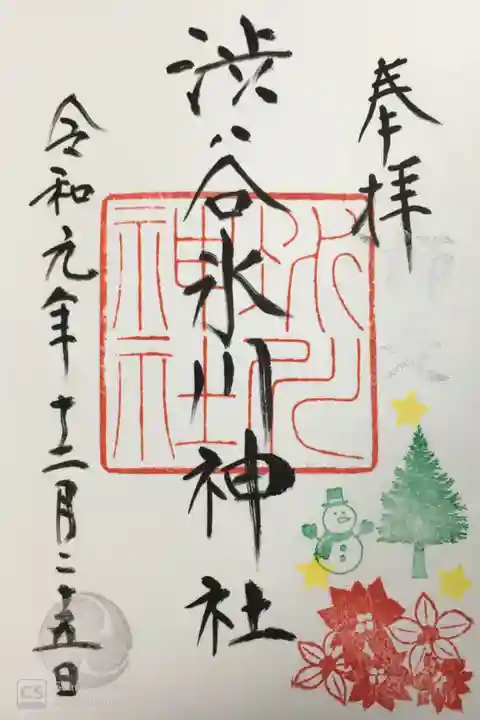 奉拝
渋谷氷川神社
氷川
神社
令和元年十二月二十五日
CS